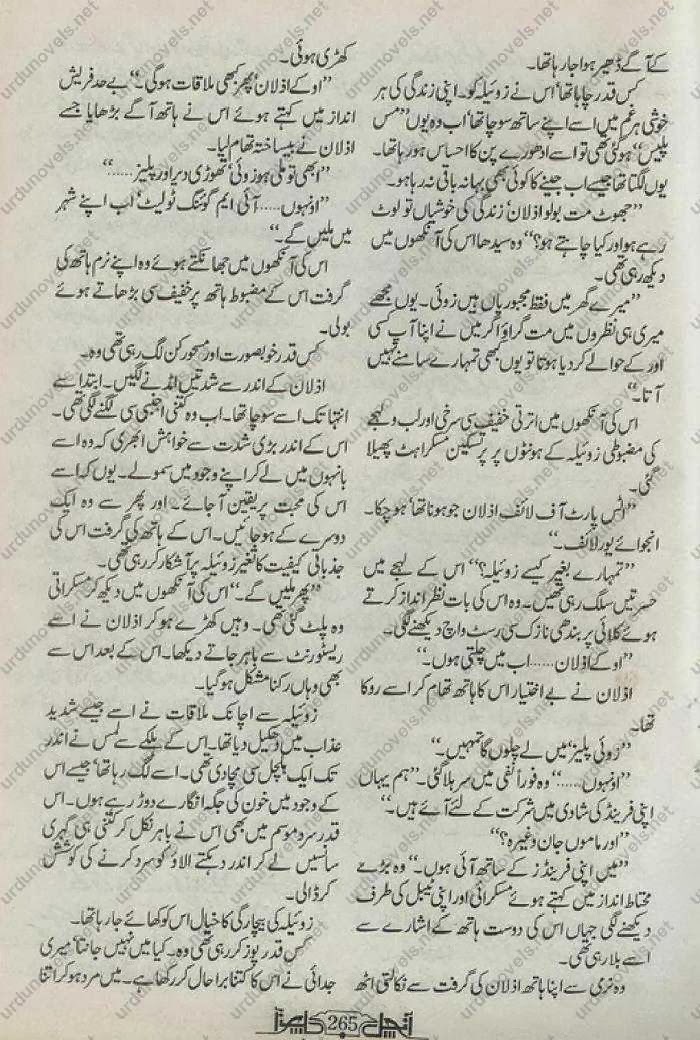 کے آگے ڈھیر ہوا جا رہا تھا۔
کس قدر چاہا تھا‘ اس نے زوئیلہ کو۔ اپنی زندگی کی ہر
خوشی ہر غم میں اسے اپنے ساتھ سوچا تھا‘ اب وہ یوں ’’مس
پلیس‘‘ ہوگئی تھی تو اسے ادھورے پن کا احساس ہو رہا تھا۔
یوں لگتا تھا جیسے اب جینے کا کوئی بھی بہانہ باقی نہ رہا ہو۔
’’جھوٹ مت بولو اذلان‘ زندگی کی خوشیاں تو لوٹ
رہے ہو اور کیا چاہتے ہو؟‘‘ وہ سیدھا اس کی آنکھوں میں
دیکھ رہی تھی۔
’’میرے گھر میں فقط مجبوریاں ہیں زوئی۔ یوں مجھے
میری ہی نظروں میں مت گراؤ اگر میں نے اپنا آپ کسی
اور کے حوالے کر دیا ہوتا تو یوں کبھی تمہارے سامنے نہیں
آتا۔‘‘
اس کی آنکھوں میں اترتی خفیف سی سرخی اور لب و لہجے
کی مضبوطی زوئیلہ کے ہونٹوں پر پرتسکین مسکراہٹ پھیلا
گئی۔
’’اٹس پارٹ آف لائف اذلان جو ہونا تھا‘ ہو چکا۔
انجوائے یور لائف۔‘‘
’’تمہارے بغیر کیسے زوئیلہ؟‘‘ اس کے لہجے میں
حسرتیں سلگ رہی تھیں۔ وہ اس کی بات نظر انداز کرتے
ہوئے کلائی پر بندھی نازک سی رسٹ واچ دیکھنے لگی۔
’’اوکے اذلان...... اب میں چلتی ہوں۔‘‘
اذلان نے بے اختیار اس کا ہاتھ تھام کر اسے روکا
تھا۔
’’زوئی پلیز‘ میں لے چلوں گا تمہیں۔‘‘
’’اونہوں......‘‘ وہ فوراً نفی میں سر ہلا گئی۔ ’’ہم یہاں
اپنی فرینڈ کی شادی میں شرکت کے لئے آئے ہیں۔‘‘
’’اور ماموں جان وغیرہ؟‘‘
’’میں اپنی فرینڈز کے ساتھ آئی ہوں۔‘‘ وہ بڑے
محتاط انداز میں کہتے ہوئے مسکرائی اور اپنی ٹیبل کی طرف
دیکھنے لگی جہاں اس کی دوست ہاتھ کے اشارے سے
اسے بلا رہی تھی۔
وہ نرمی سے اپنا ہاتھ اذلان کی گرفت سے نکالتی اٹھ
کھڑی ہوئی۔
’’اوکے اذلان‘ پھر کبھی ملاقات ہوگی۔‘‘ بے حد فریش
انداز میں کہتے ہوئے اس نے ہاتھ آگے بڑھایا جسے
اذلان نے بیساختہ تھام لیا۔
’’ابھی تو ملی ہو زوئی‘ تھوڑی دیر اور پلیز......‘‘
’’اونہوں...... آئی ایم گوئنگ ٹو لیٹ‘ اب اپنے شہر
میں ملیں گے۔‘‘
اس کی آنکھوں میں جھانکتے ہوئے وہ اپنے نرم ہاتھ کی
گرفت اس کے مضبوط ہاتھ پر خفیف سی بڑھاتے ہوئے
بولی۔
کس قدر خوبصورت اور مسحور کن لگ رہی تھی وہ۔
اذلان کے اندر سے شدتیں امڈنے لگیں۔ ابتدا سے
انتہا تک اسے سوچا تھا۔ اب وہ کتنی اجنبی سی لگنے لگی تھی۔
اس کے اندر بڑی شدت سے خواہش ابھری کہ وہ اسے
بانہوں میں لے کر اپنے وجود میں سمو لے۔ یوں کہ اسے
اس کی محبت پر یقین آ جائے۔ اور پھر سے وہ ایک
دوسرے کے ہو جائیں۔ اس کے ہاتھ کی گرفت اس کی
جذباتی کیفیت کا تغیر زوئیلہ پر آشکار کر رہی تھی۔
’’پھر ملیں گے۔‘‘ اس کی آنکھوں میں دیکھ کر مسکراتی
وہ پلٹ گئی تھی۔ وہیں کھڑے ہو کر اذلان نے اسے
ریسٹورنٹ سے باہر جاتے دیکھا۔ اس کے بعد اس سے
بھی وہاں رکنا مشکل ہو گیا۔
زوئیلہ سے اچانک ملاقات نے اسے جیسے شدید
عذاب میں دھکیل دیا تھا۔ اس کے ہلکے سے لمس نے اندر
تک ایک ہلچل سی مچا دی تھی۔ اسے لگ رہا تھا‘ جیسے اس
کے وجود میں خون کی جگہ انگارے دوڑ رہے ہوں۔ اس
قدر سرد موسم میں بھی اس نے باہر نکل کر کتنی ہی گہری
سانسیں لے کر اندر دہکتے الاؤ کو سرد کرنے کی کوشش
کر ڈالی۔
زوئیلہ کی بیچارگی کا خیال اس کو کھائے جا رہا تھا۔
کس قدر پوز کر رہی تھی وہ۔ کیا میں نہیں جانتا‘ میری
جدائی نے اس کا کتنا برا حال کر رکھا ہے۔ میں مرد ہو کر اتنا
آنچل 265
urdunovels.net